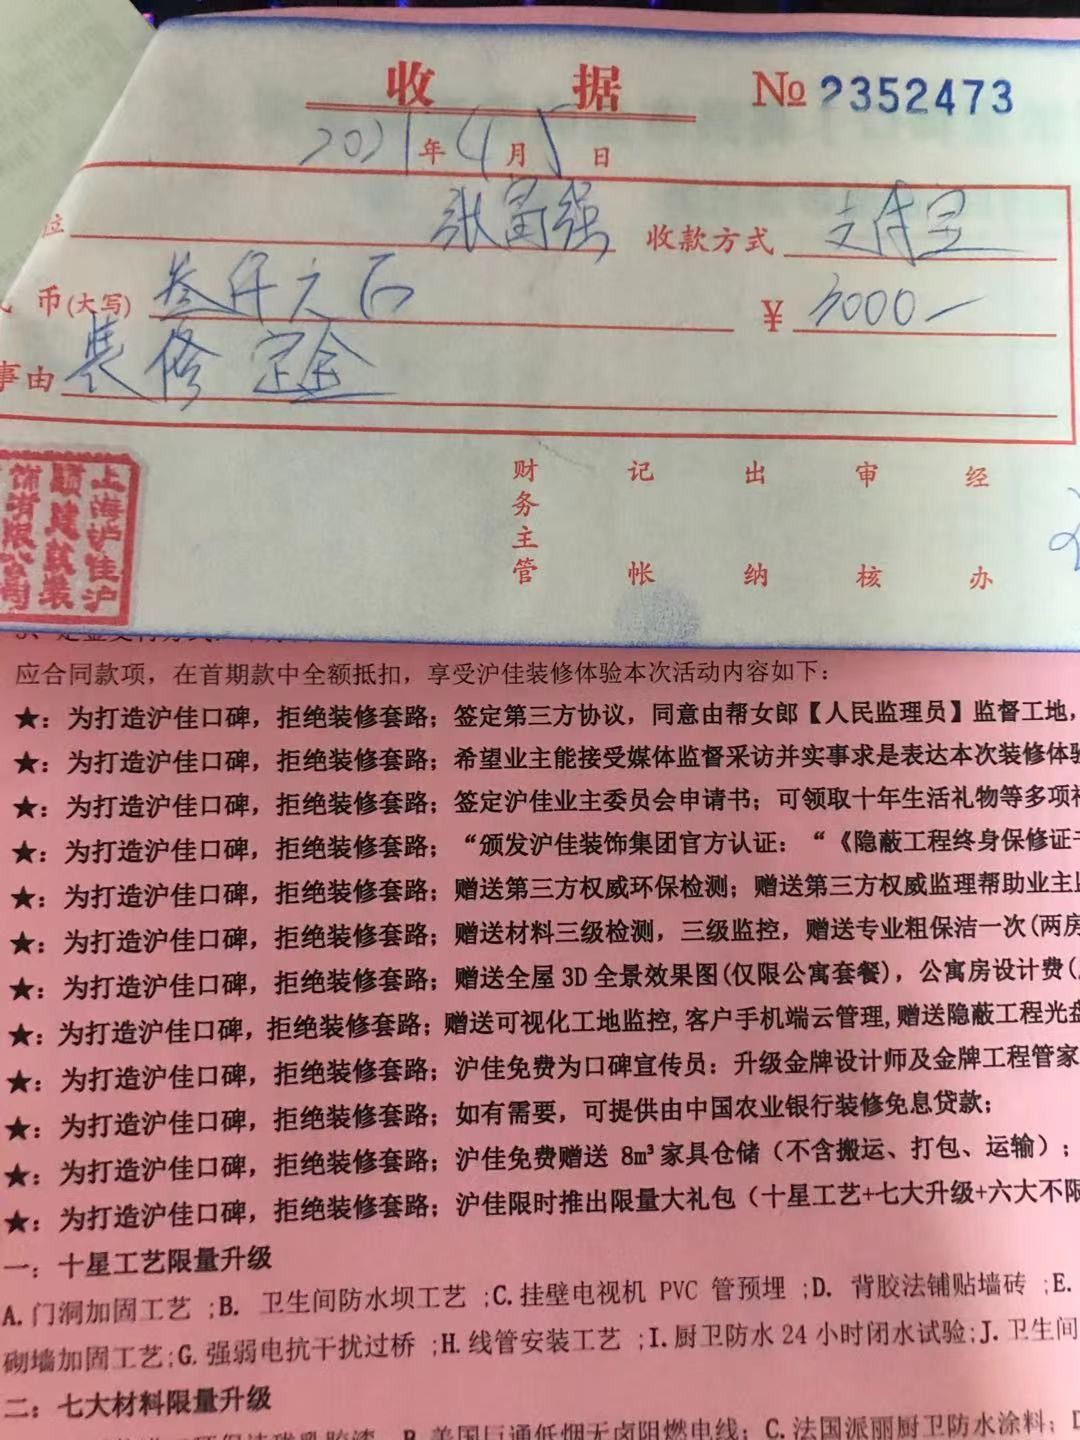 收 据 № 2352473
2021年4月5日
位 张富强 收款方式 支付宝
币(大写) 叁仟元正 ¥ 3000—
事由 装修定金
财务主管 记帐 出纳 审核 经办
上海沪佳沪
建筑装
饰有限公司
应合同款项，在首期款中全额抵扣，享受沪佳装修体验本次活动内容如下：
★：为打造沪佳口碑，拒绝装修套路；签定第三方协议，同意由帮女郎【人民监理员】监督工地，
★：为打造沪佳口碑，拒绝装修套路；希望业主能接受媒体监督采访并实事求是表达本次装修体验
★：为打造沪佳口碑，拒绝装修套路；签定沪佳业主委员会申请书；可领取十年生活礼物等多项
★：为打造沪佳口碑，拒绝装修套路；“颁发沪佳装饰集团官方认证：“《隐蔽工程终身保修证
★：为打造沪佳口碑，拒绝装修套路；赠送第三方权威环保检测；赠送第三方权威监理帮助业主
★：为打造沪佳口碑，拒绝装修套路；赠送材料三级检测，三级监控，赠送专业粗保洁一次(两房
★：为打造沪佳口碑，拒绝装修套路；赠送全屋3D全景效果图(仅限公寓套餐)，公寓房设计费(
★：为打造沪佳口碑，拒绝装修套路；赠送可视化工地监控,客户手机端云管理,赠送隐蔽工程光盘
★：为打造沪佳口碑，拒绝装修套路；沪佳免费为口碑宣传员：升级金牌设计师及金牌工程管家
★：为打造沪佳口碑，拒绝装修套路；如有需要，可提供由中国农业银行装修免息贷款；
★：为打造沪佳口碑，拒绝装修套路；沪佳免费赠送 8m³家具仓储（不含搬运、打包、运输）；
★：为打造沪佳口碑，拒绝装修套路；沪佳限时推出限量大礼包（十星工艺+七大升级+六大不限
一：十星工艺限量升级
A.门洞加固工艺 ;B. 卫生间防水坝工艺 ;C.挂壁电视机 PVC 管预埋 ;D. 背胶法铺贴墙砖 ;E.
砌墙加固工艺;G.强弱电抗干扰过桥 ;H.线管安装工艺 ;I.厨卫防水24小时闭水试验;J.卫生间
二：七大材料限量升级
B.美国巨通低烟无卤阻燃电线；C.法国派丽厨卫防水涂料；D